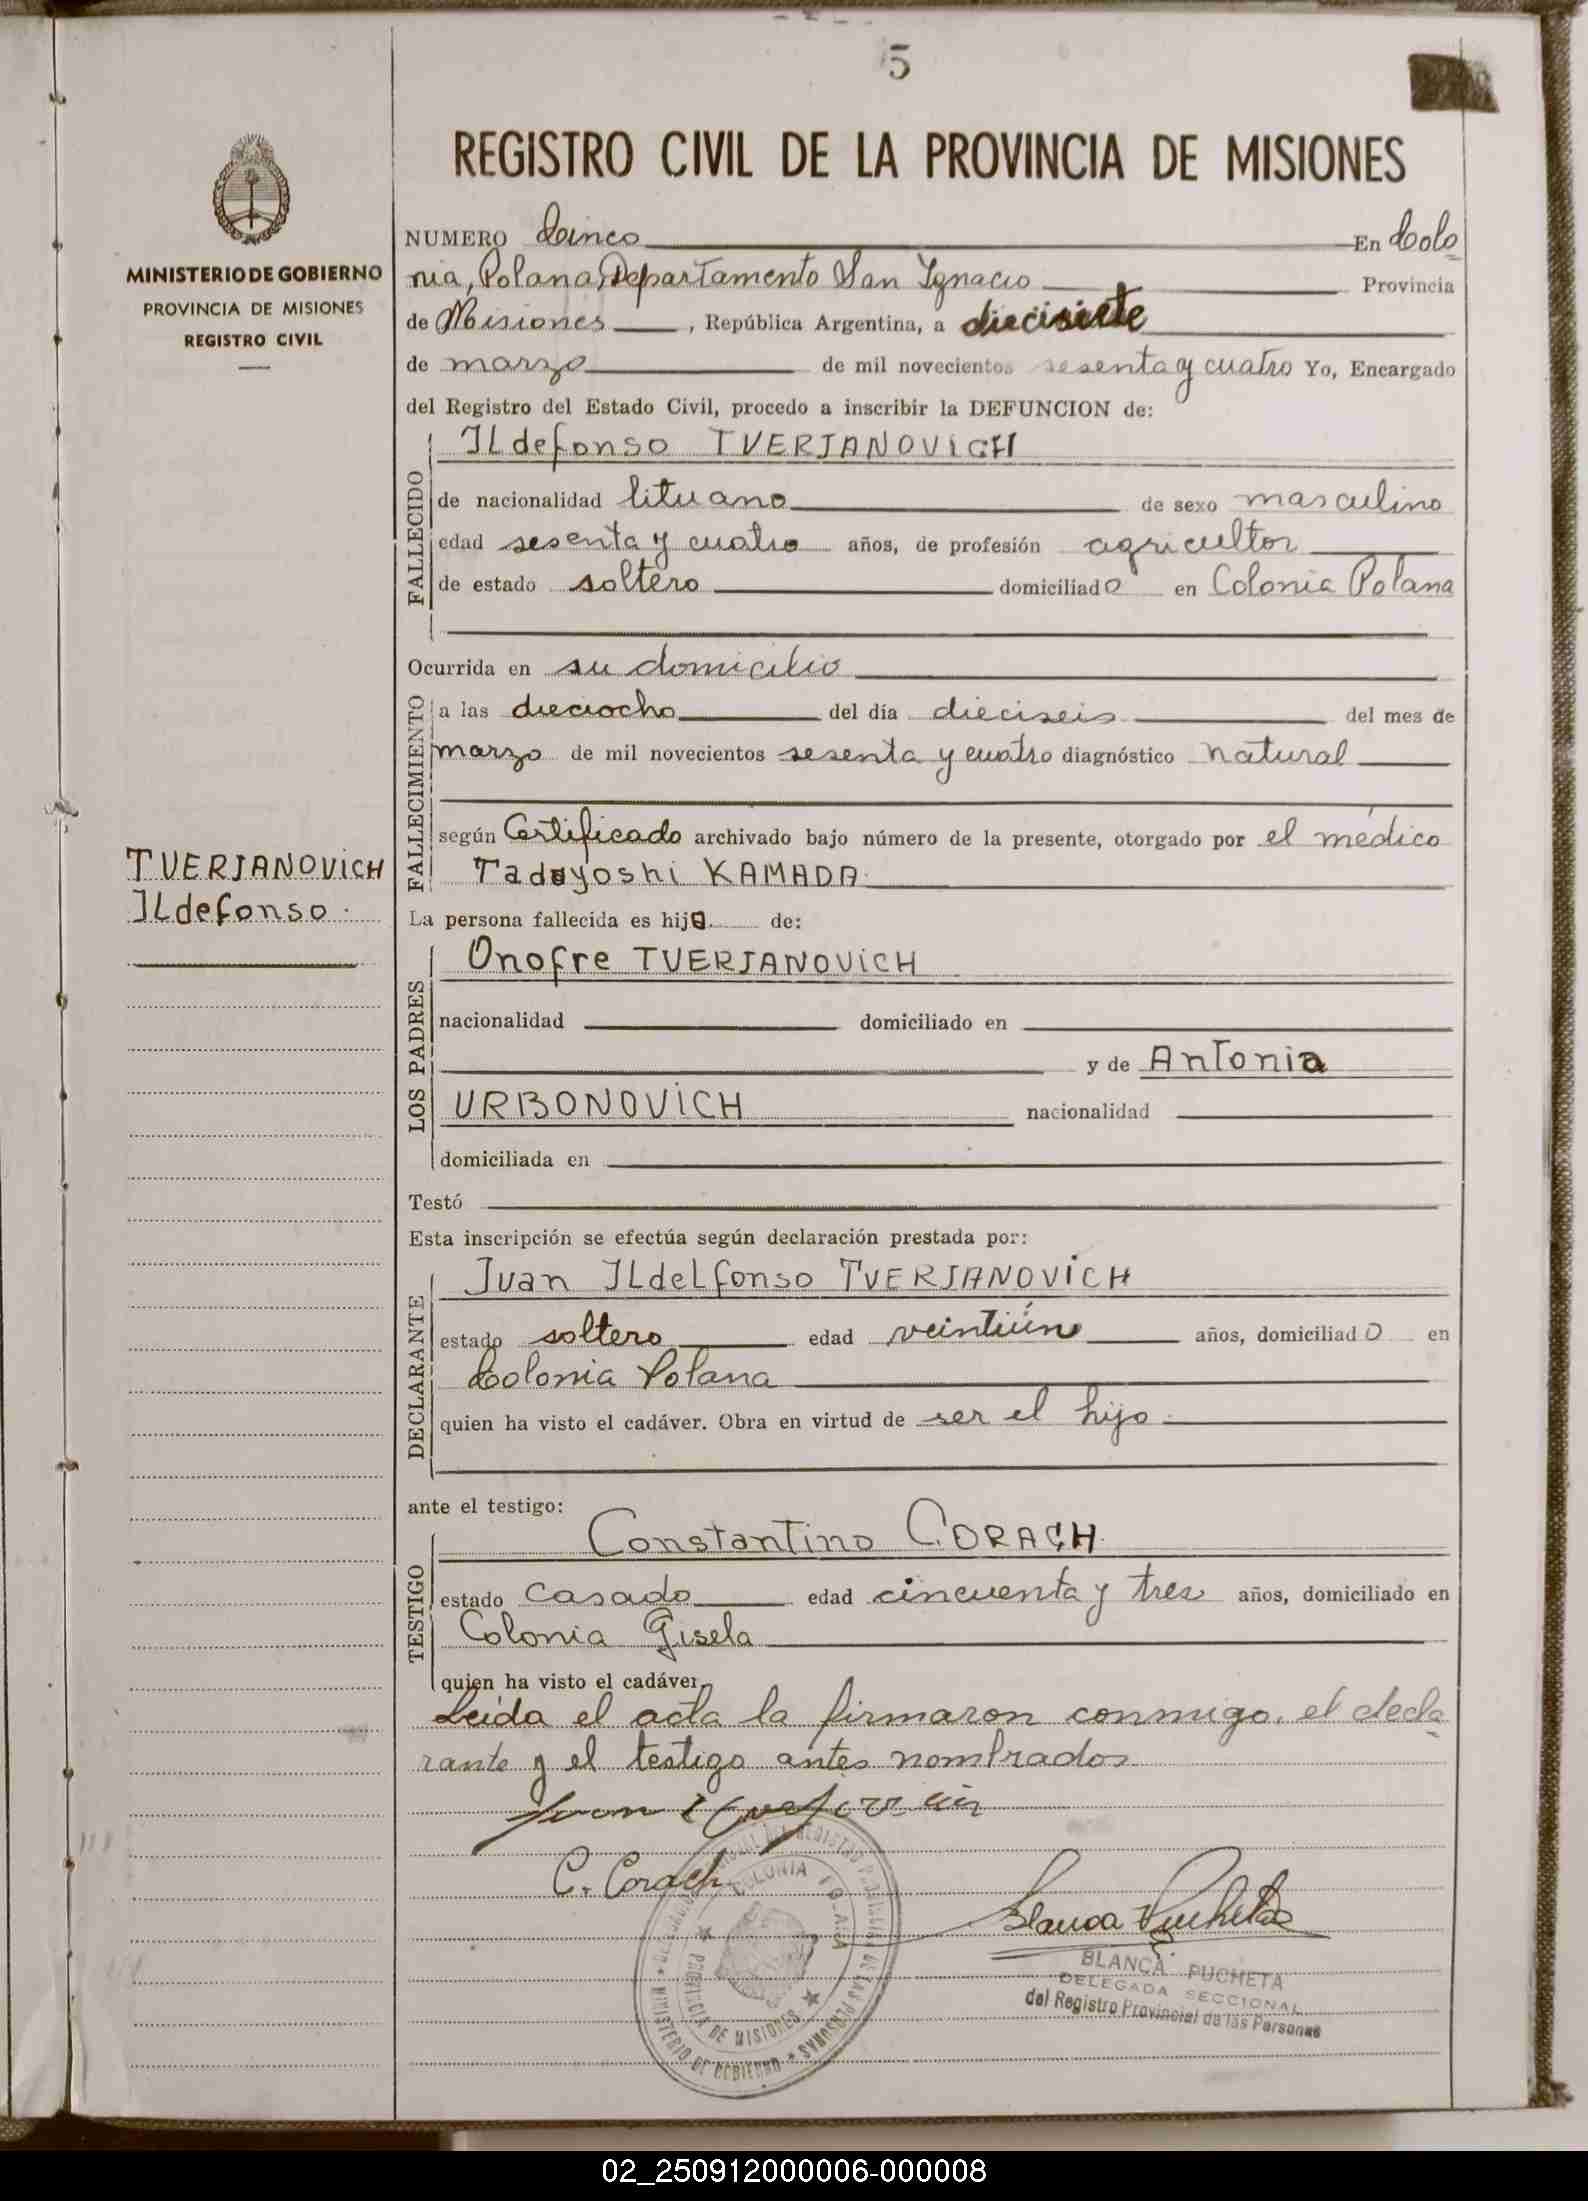 5
REGISTRO CIVIL DE LA PROVINCIA DE MISIONES
MINISTERIO DE GOBIERNO
PROVINCIA DE MISIONES
REGISTRO CIVIL
NUMERO Cinco En Colo
nia, Polana, Departamento San Ignacio Provincia
de Misiones, República Argentina, a diecisiete
de marzo de mil novecientos sesenta y cuatro Yo, Encargado
del Registro del Estado Civil, procedo a inscribir la DEFUNCION de:
FALLECIDO
ILdefonso TVERJANOVICH
de nacionalidad lituano de sexo masculino
edad sesenta y cuatro años, de profesión agricultor
de estado soltero domiciliado en Colonia Polana
Ocurrida en su domicilio
FALLECIMIENTO
a las dieciocho del día dieciseis del mes de
marzo de mil novecientos sesenta y cuatro diagnóstico natural
según Certificado archivado bajo número de la presente, otorgado por el médico
Tadayoshi KAMADA
TVERJANOVICH
ILdefonso.
La persona fallecida es hijo de:
LOS PADRES
Onofre TVERJANOVICH
nacionalidad domiciliado en
y de Antonia
URBONOVICH nacionalidad
domiciliada en
Testó
Esta inscripción se efectúa según declaración prestada por:
DECLARANTE
Juan ILdeLfonso TVERJANOVICH
estado soltero edad veintiún años, domiciliado en
Colonia Polana
quien ha visto el cadáver. Obra en virtud de ser el hijo.
ante el testigo:
TESTIGO
Constantino CORACH
estado casado edad cincuenta y tres años, domiciliado en
Colonia Gisela
quien ha visto el cadáver.
Leída el acta la firmaron conmigo, el decla
rante y el testigo antes nombrados
C. Corach
COLONIA POLANA
PROVINCIA DE MISIONES
MINISTERIO DE GOBIERNO
Blanca Pucheta
BLANCA PUCHETA
DELEGADA SECCIONAL
del Registro Provincial de las Personas
02_250912000006-000008